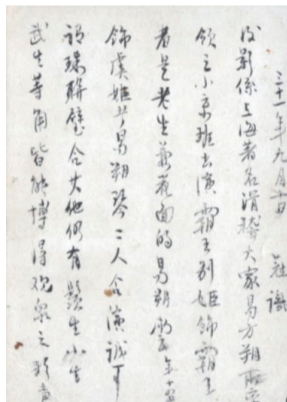 三十一年九月廿日 莊識
後影係上海著名滑稽大家易方朔所率
領之小京班去演霸王別姬飾霸王
者是老生兼花面的易朔
飾虞姬者易朔琴二人合演誠可
謂珠聯璧合大他们有鬚生小生
武生等角皆能博得观眾之